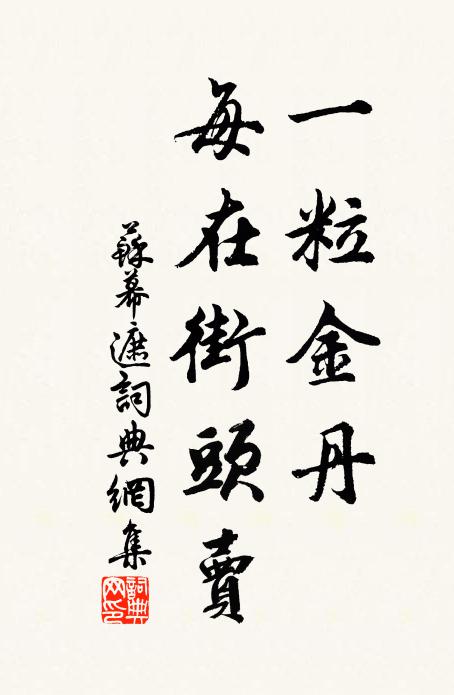 一粒金丹
每在街頭賣
蘇幕遮詞典網集
詞典網印